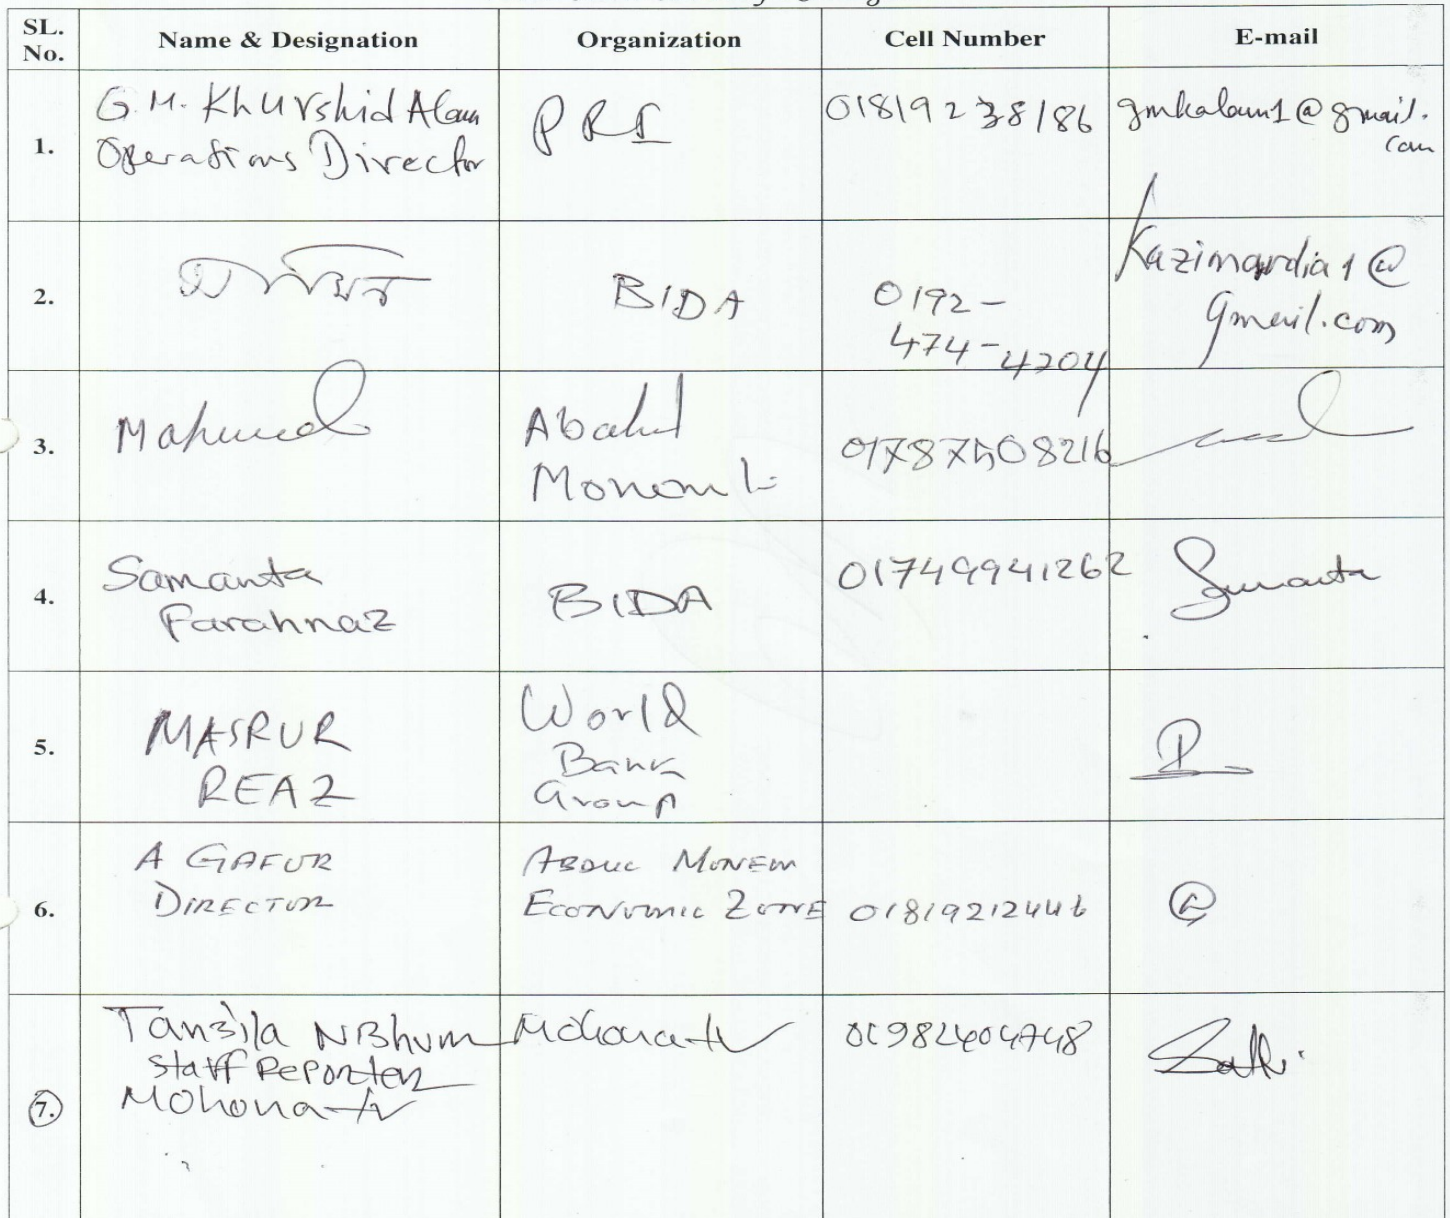 SL. No.
Name & Designation
Organization
Cell Number
E-mail
1.
G.M. Khurshid Alam
Operations Director
PRI
01819238186
gmkalam1@gmail.
com
2.
BIDA
0192-
474-4204
Kazimardia1@
gmail.com
3.
Mahmud
Monem
01787508216
4.
Samanta
Farahnaz
BIDA
01749941262
Samanta
5.
MASRUR
REAZ
World
Bank
Group
6.
A GAFUR
DIRECTOR
ABDUL MONEM
ECONOMIC ZONE
01819212446
7.
Tanzila
Staff Reporter
Mohona tv
Mohona tv